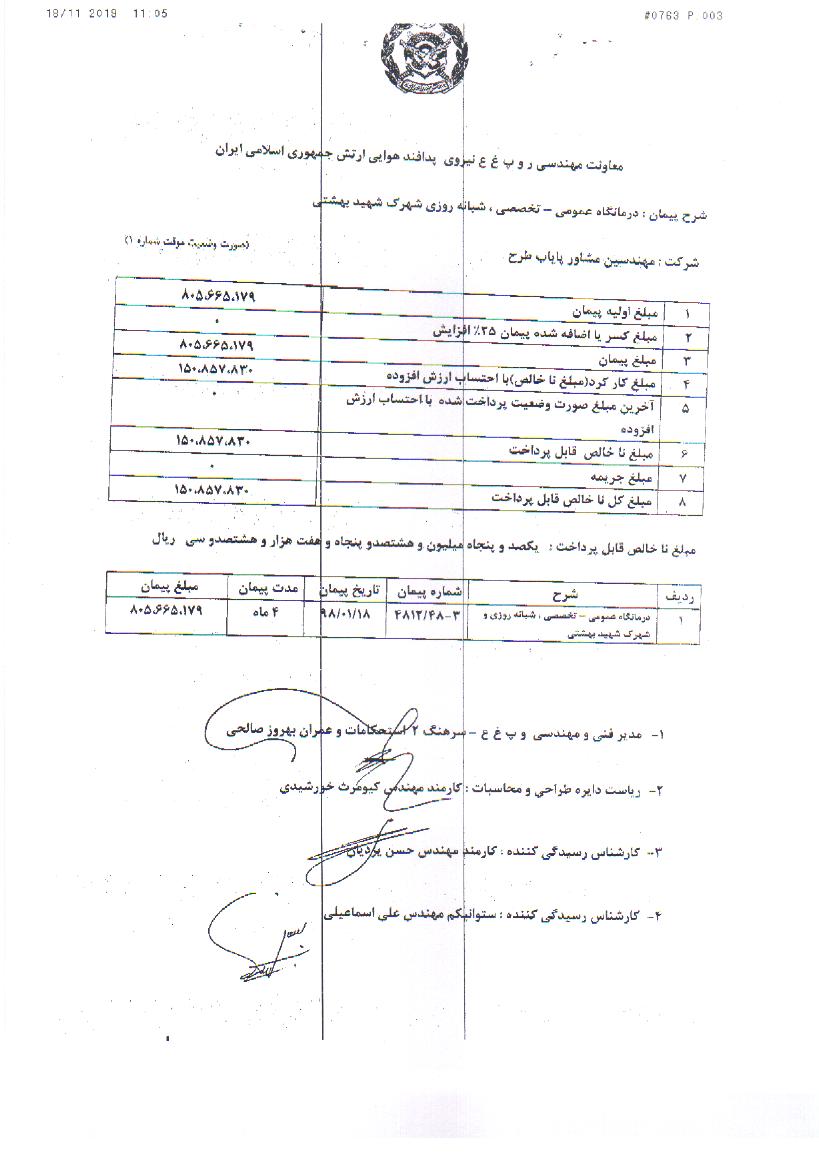 18/11 2019 11:05 #0763 P.003
معاونت مهندسی ر و پ غ ع نیروی پدافند هوایی ارتش جمهوری اسلامی ایران
شرح پیمان : درمانگاه عمومی – تخصصی ، شبانه روزی شهرک شهید بهشتی
(صورت وضعیت موقت شماره ۱)
شرکت : مهندسین مشاور پایاب طرح
۱ مبلغ اولیه پیمان ۸۰۵،۶۶۵،۱۷۹
۲ مبلغ کسر یا اضافه شده پیمان ۲۵٪ افزایش ۰
۳ مبلغ پیمان ۸۰۵،۶۶۵،۱۷۹
۴ مبلغ کار کرد(مبلغ نا خالص)با احتساب ارزش افزوده ۱۵۰،۸۵۷،۸۳۰
۵ آخرین مبلغ صورت وضعیت پرداخت شده با احتساب ارزش ۰
افزوده
۶ مبلغ نا خالص قابل پرداخت ۱۵۰،۸۵۷،۸۳۰
۷ مبلغ جریمه ۰
۸ مبلغ کل نا خالص قابل پرداخت ۱۵۰،۸۵۷،۸۳۰
مبلغ نا خالص قابل پرداخت : یکصد و پنجاه میلیون و هشتصدو پنجاه و هفت هزار و هشتصدو سی ریال
ردیف شرح شماره پیمان تاریخ پیمان مدت پیمان مبلغ پیمان
۱ درمانگاه عمومی – تخصصی ، شبانه روزی و ۴۸۱۲/۴۸-۳ ۹۸/۰۱/۱۸ ۴ ماه ۸۰۵،۶۶۵،۱۷۹
شهرک شهید بهشتی
۱- مدیر فنی و مهندسی و پ غ ع – سرهنگ ۲ استحکامات و عمران بهروز صالحی
۲- ریاست دایره طراحی و محاسبات : کارمند مهندس کیومرث خورشیدی
۳- کارشناس رسیدگی کننده : کارمند مهندس حسن یزدیان
۴- کارشناس رسیدگی کننده : ستوانیکم مهندس علی اسماعیلی